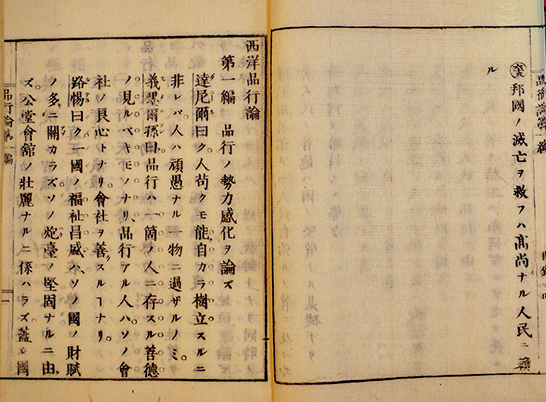 邦國ノ滅亡ヲ救フハ高尚ナル人民ニ
ル
西洋品行論
第一編 品行ノ勢力感化ヲ論ズ
達尼爾曰ク人苟クモ能自カラ樹立スルニ
非レバ人ハ頑愚ナル一物ニ過ザルノミ
義墨爾孫曰品行ハ一箇ノ人ニ存スル善德
ノ見ルベキモノナリ品行アル人ハソノ會
社ノ良心トナリ會社ヲ善スルーナリ
路惕曰ク一國ノ福祉昌盛ハソノ國ノ財賦
ノ多ニ關カラズソノ炮臺ノ堅固ナルニ由
ズ公堂會館ノ壯麗ナルニ係ハラズ蓋シ國
品行論第一編
一